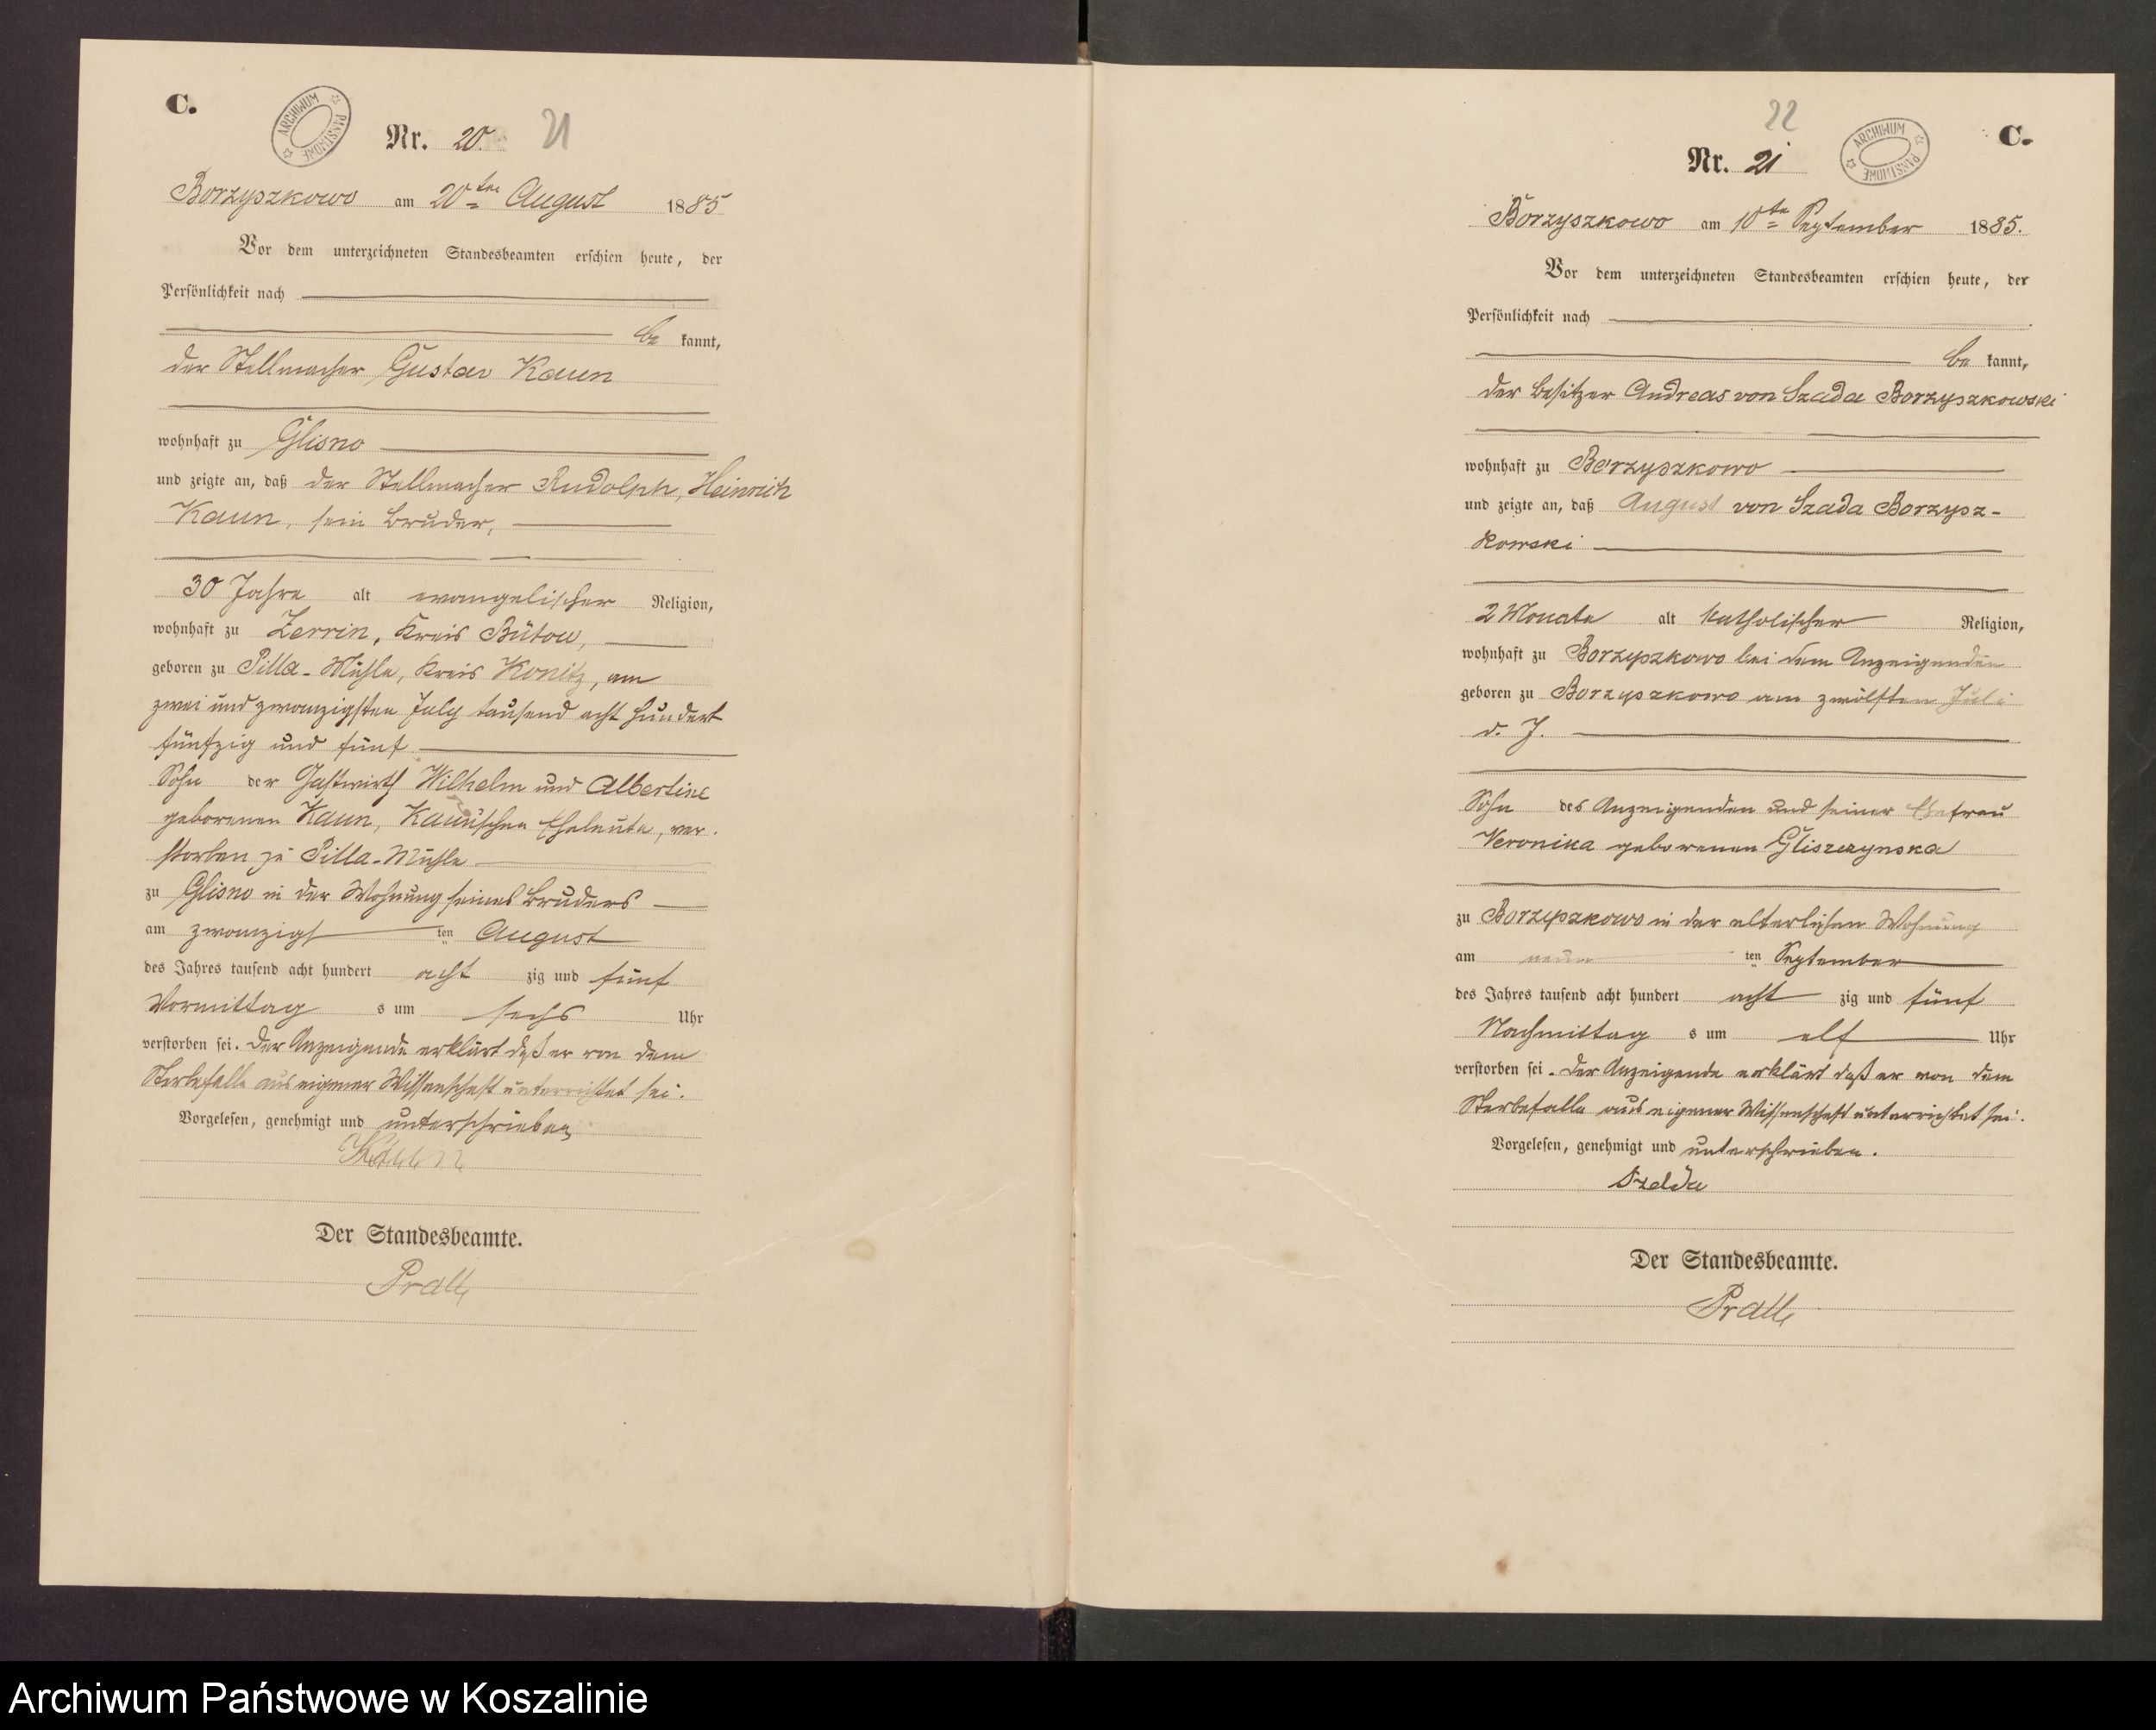 C.
ARCHIWUM PAŃSTWOWE
Nr. 20. 21
Borzyszkowo am 20ten August 1885
Vor dem unterzeichneten Standesbeamten erschien heute, der
Persönlichkeit nach
be kannt,
der Stellmacher Gustav Kaun
wohnhaft zu Glisno
und zeigte an, daß der Stellmacher Rudolph, Heinrich
Kaun, sein Bruder,
30 Jahre alt evangelischer Religion,
wohnhaft zu Zerrin, Kreis Bütow,
geboren zu Pilla-Mühle, Kreis Konitz, am
zwei und zwanzigsten July tausend acht hundert
fünfzig und fünf
Sohn der Gastwirth Wilhelm und Albertine
geborenen Kaun, Kaun'schen Eheleute, ver-
storben zu Pilla-Mühle
zu Glisno in der Wohnung seines Bruders
am zwanzigs ten August
des Jahres tausend acht hundert acht zig und fünf
Vormittag s um sechs Uhr
verstorben sei. Der Anzeigende erklärt daß er von dem
Sterbefalle aus eigener Wissenschaft unterrichtet sei.
Vorgelesen, genehmigt und unterschrieben
Kaun
Der Standesbeamte.
Prall
22
C.
ARCHIWUM PAŃSTWOWE
Nr. 21
Borzyszkowo am 10ten September 1885.
Vor dem unterzeichneten Standesbeamten erschien heute, der
Persönlichkeit nach
be kannt,
der Besitzer Andreas von Szada Borzyszkowski
wohnhaft zu Borzyszkowo
und zeigte an, daß August von Szada Borzysz-
kowski
2 Monate alt katholischer Religion,
wohnhaft zu Borzyszkowo bei dem Anzeigenden
geboren zu Borzyszkowo am zwölften Juli
d. J.
Sohn des Anzeigenden und seiner Ehefrau
Veronika geborenen Gliszczynska
zu Borzyszkowo in der elterlichen Wohnung
am neun ten September
des Jahres tausend acht hundert acht zig und fünf
Nachmittag s um elf Uhr
verstorben sei. Der Anzeigende erklärt daß er von dem
Sterbefalle aus eigener Wissenschaft unterrichtet sei.
Vorgelesen, genehmigt und unterschrieben.
Szelda
Der Standesbeamte.
Prall
Archiwum Państwowe w Koszalinie